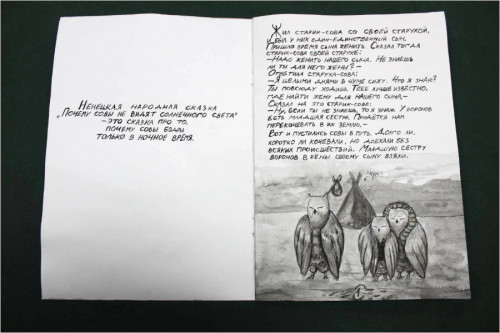 Ненецкая народная сказка
„Почему совы не видят солнечного света"
– это сказка про то,
почему совы ездят
только в ночное время.
Жил старик-сова со своей старухой,
и был у них один-единственный сын.
Пришло время сына женить. Сказал тогда
старик-сова своей старухе:
–Надо женить нашего сына. Не знаешь
ли ты для него жены?–
Ответила старуха-сова:
–Я целыми днями в чуме сижу. Что я знаю?
Ты повсюду ходишь. Тебе лучше известно,
где найти жену для нашего сына.–
Сказал на это старик-сова:
–Ну, если ты не знаешь, то я знаю. У воронов
есть младшая сестра. Придётся нам
перекочевать в их землю.–
Вот и пустились совы в путь. Долго ли,
коротко ли кочевали, но доехали без
всяких происшествий. Младшую сестру
воронов в жёны своему сыну взяли.
Чум